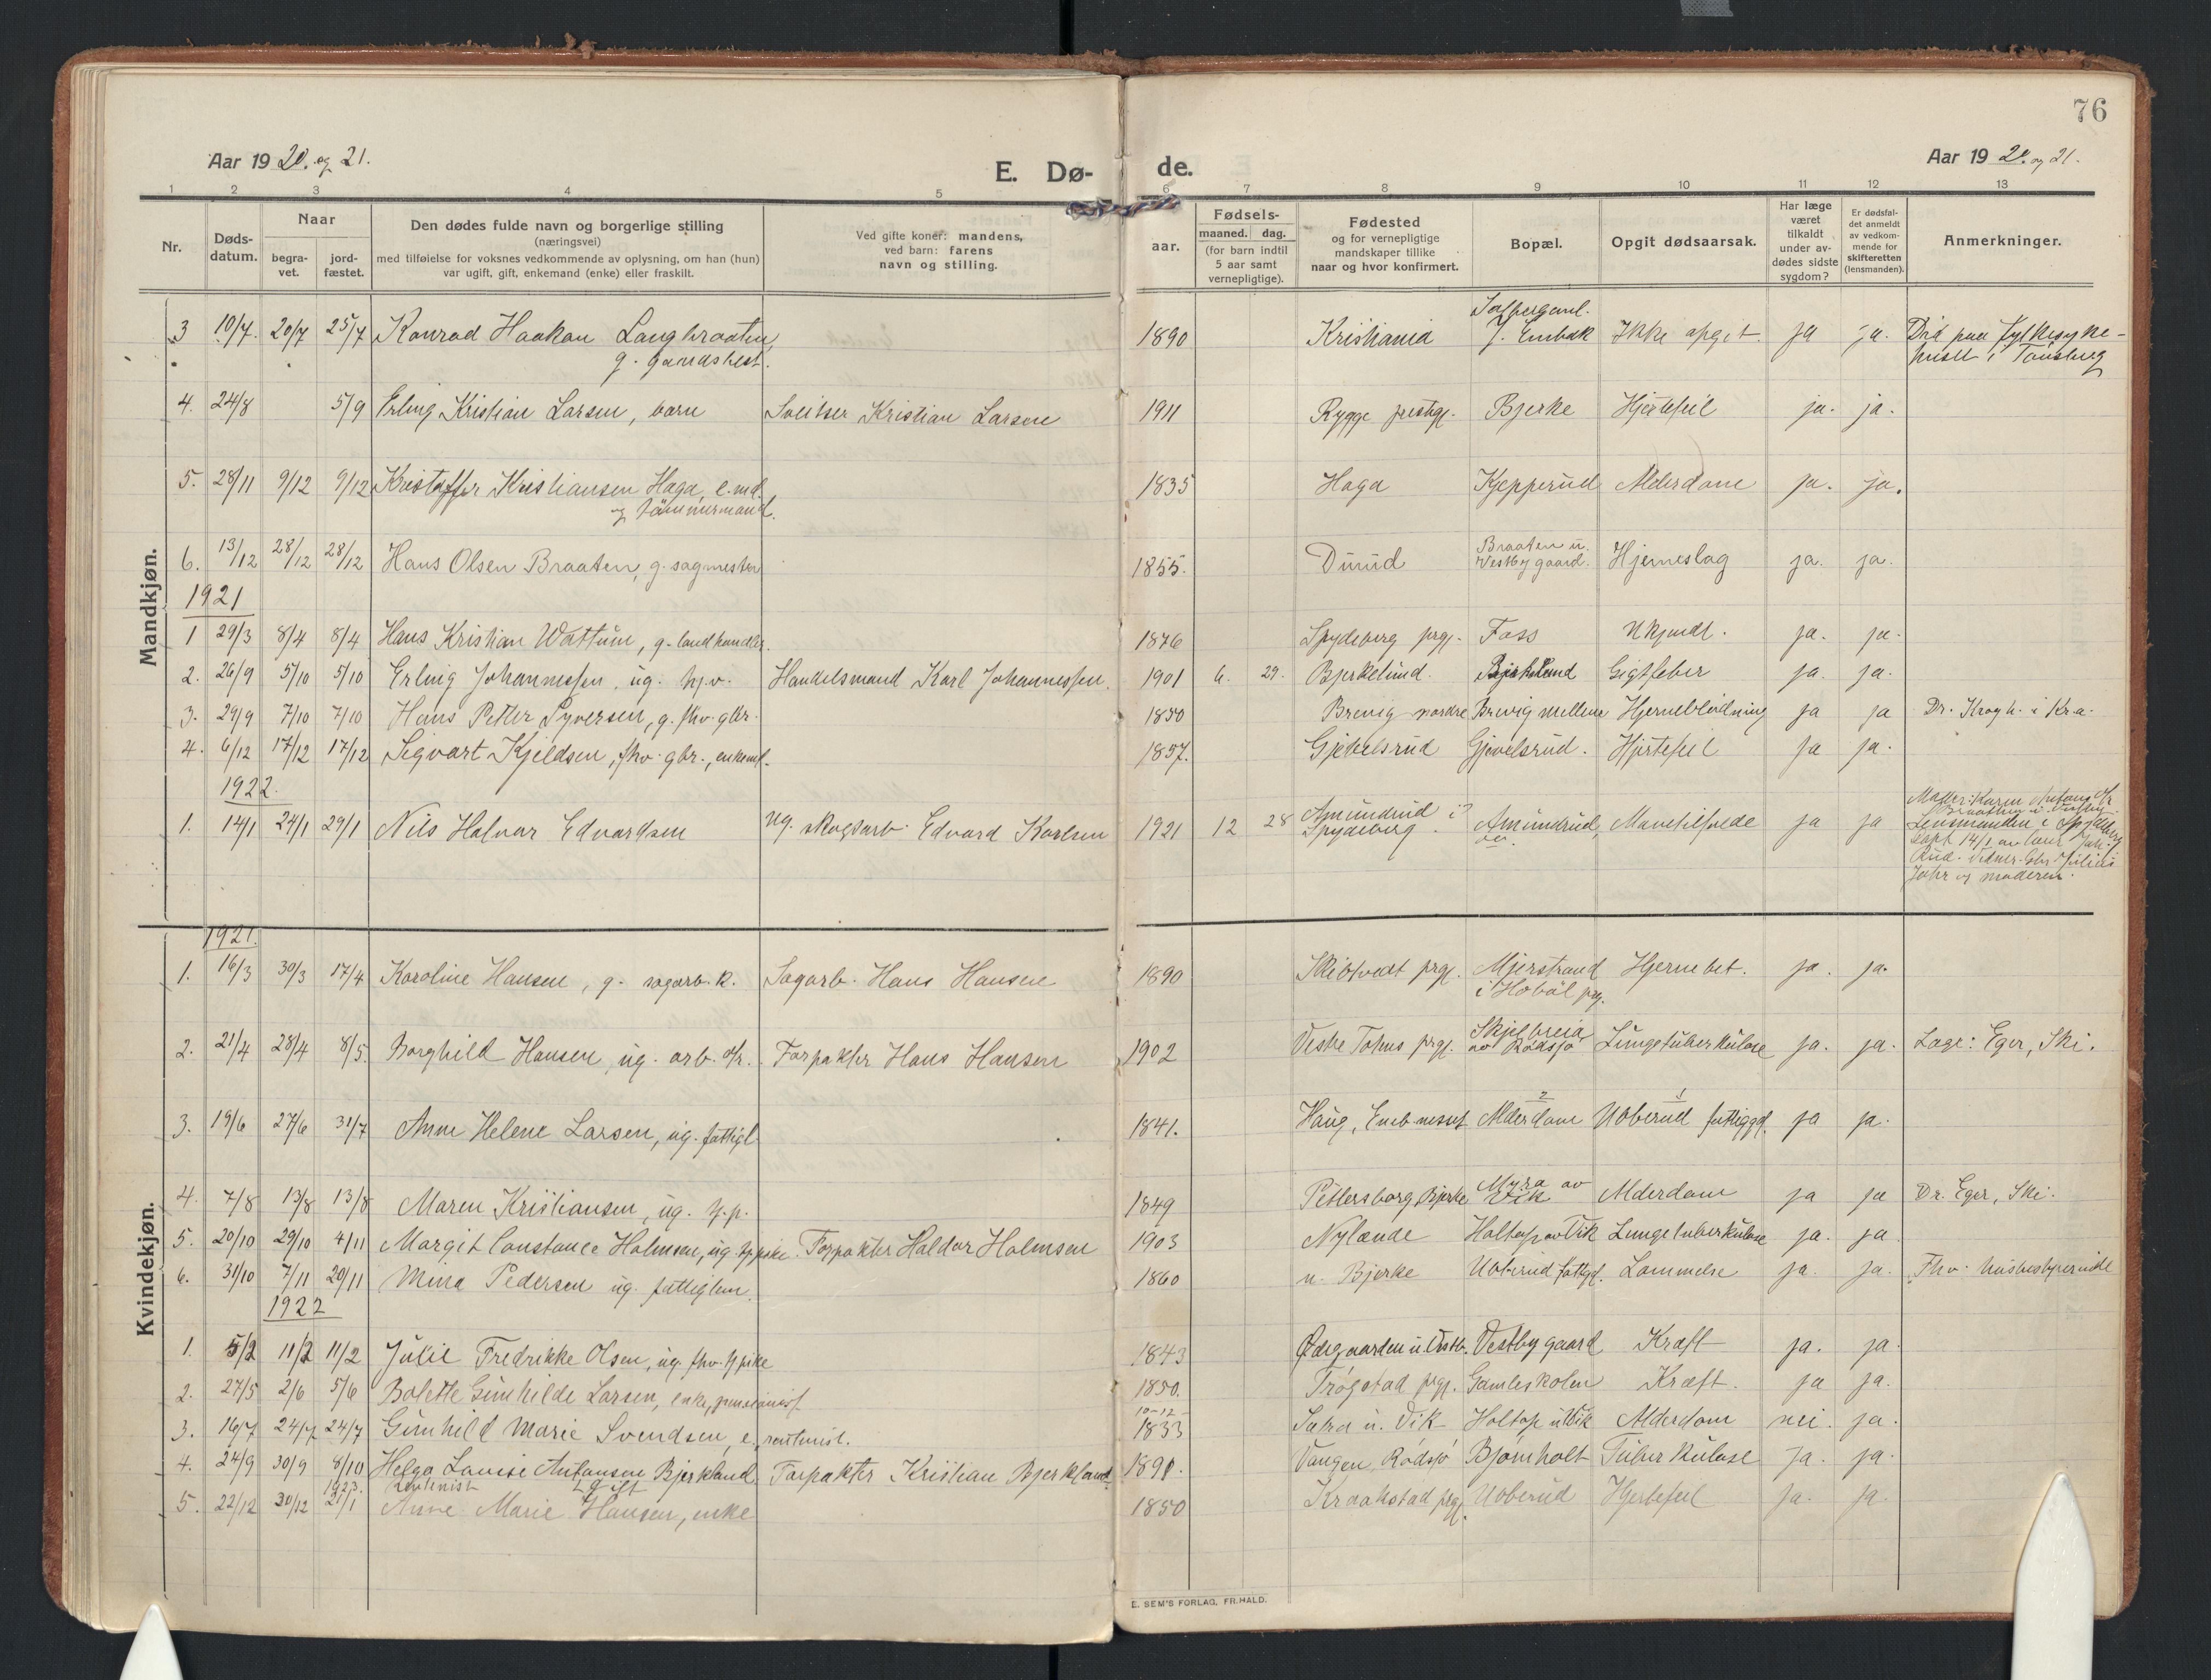 76
Aar 1920. og 21.
E. Dø- de.
Aar 1920. og 21.
1 2 3 4 5 6 7 8 9 10 11 12 13
Nr.
Døds-datum.
Naar
begra-vet.
jord-fæstet.
Den dødes fulde navn og borgerlige stilling
(næringsvei)
med tilføielse for voksnes vedkommende av oplysning, om han (hun)
var ugift, gift, enkemand (enke) eller fraskilt.
Ved gifte koner: mandens,
ved barn: farens
navn og stilling.
Fødsels-
aar.
maaned. dag.
(for barn indtil
5 aar samt
vernepligtige).
Fødested
og for vernepligtige
mandskaper tillike
naar og hvor konfirmert.
Bopæl.
Opgit dødsaarsak.
Har læge
været
tilkaldt
under av-
dødes sidste
sygdom?
Er dødsfal-
det anmeldt
av vedkom-
mende for
skifteretten
(lensmanden).
Anmerkninger.
Mandkjøn.
3 10/7. 20/7 25/7 Konrad Haakon Langbraaten, 1890 Kristiania Ikke opgit. ja ja. Død paa fylkesyke-
g. gaardsbest. huset i Tønsberg
4. 24/8 5/9 Erling Kristian Larsen, barn Sveitser Kristian Larsen 1911 Rygge prestgj. Bjerke Hjertefeil ja. ja.
5. 28/11 9/12 9/12 Kristoffer Kristiansen Haga, e.md. 1835 Haga Kjepperud Alderdom ja. ja.
og tømmermand.
6. 13/12 28/12 28/12 Hans Olsen Braaten, g. sagmester 1855. Duud Braaten u. Vestby gaard. Hjerneslag ja. ja.
1921
1 29/3 8/4 8/4 Hans Kristian Wattum, g. landhandler. 1876 Spydeberg prgj. Foss Ukjendt. ja. ja.
2. 26/9 5/10 5/10 Erling Johannessen, ug. hj.v. Handelsmand Karl Johannessen. 1901 6. 29. Bjerkelund. Bjerkelund Gigtfeber ja. ja.
3. 29/9 7/10 7/10 Hans Petter Syversen, g. fhv. gbr. 1850 Brevig nordre Brevig mellem Hjerneblødning ja ja Dr. Krogh. i Kra.
4. 6/12 17/12 17/12 Sigvart Kjeldsen, fhv. gbr., enkemd. 1857. Gjevelsrud Gjevelsrud. Hjertefeil ja ja.
1922.
1. 14/1 24/1 29/1 Nils Halvor Edvardsen Ug. skogsarb. Edvard Karlsen 1921 12 28 Amundrud i Spydeberg. Amundrud, Mavetilfelde ja ja Moder: Karen
Lensmanden i Spydeberg
Jahr og moderen.
Kvindekjøn.
1921.
1. 16/3 30/3 17/4 Karoline Hansen, g. sagarb. k. Sagarb. Hans Hansen 1890 Skibtvedt prgj. Mjerstrand Hjernebet. ja. ja.
i Hobøl prg.
2. 21/4 28/4 8/5. Borghild Hansen, ug. arb. dtr. Forpakter Hans Hansen 1902 Vestre Totens prgj. Skjelbreia av Rødsjø Lungetuberkulose ja. ja. Læge: Eger, Ski.
3. 19/6 27/6 31/7 Anne Helene Larsen, ug. fattigl. 1841. Haug, 2 Alderdom 1 Uoberud fattiggd. ja ja.
4. 7/8 13/8 13/8 Maren Kristiansen, ug. hj.p. 1849 Pettersborg Bjerke Myra av Vik Alderdom ja ja Dr. Eger, Ski.
5. 20/10 29/10 4/11 Margit Constance Holmsen, ug. hj.pike. Forpakter Haldor Holmsen 1903 Nylænde Holtop av Vik Lungetuberkulose ja. ja
6. 31/10 7/11 20/11 Mina Pedersen ug. fattiglem. 1860 n. Bjerke Uoberud fattgd. Lammelse ja. ja. Fhv. husbestyrerinde
1922
1. 5/2 11/2 11/2 Julie Fredrikke Olsen, ug. fhv. hj.pike 1843 Ødegaarden u. Vestb. Vestby gaard Kræft ja. ja
2. 27/5 2/6 5/6 Bolette Gunhilde Larsen, enke, pensionist 1850. Trøgstad prgj. Gamleskolen Kræft. ja ja.
10-12-
3. 16/7 24/7 24/7 Gunhild Marie Svendsen, e. rentenist. 1833 Sætra u. Vik Holtop u. Vik Alderdom nei. ja.
4. 24/9 30/9 8/10 Helga Lovise Antonsen Bjerkland. Forpakter Kristian Bjerkland. 1891. Vangen, Rødsjø Bjørnholt Tuberkulose ja. ja.
1923. Rentenist gift
5. 22/12 30/12 21/1 Anne Marie Hansen, enke 1850 Kraakstad prgj. Uoberud Hjertefeil ja. ja.
E. SEM'S FORLAG, FR.HALD.